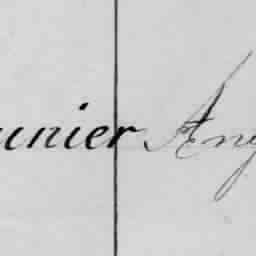 unier Ang